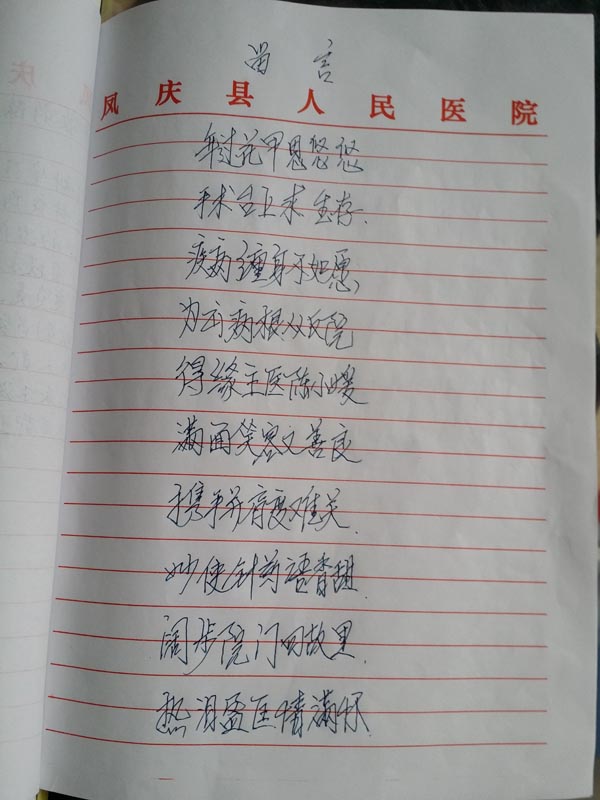 留言
凤庆县人民医院
年过花甲思悠悠
手术台上求生存.
疾病缠身不如愿,
为于病根入民院
得缘主医陈小媛
满面笑容又善良
携手并肩度难关.
妙使针药语香甜.
阔步院门回故里.
热泪盈匡情满怀.